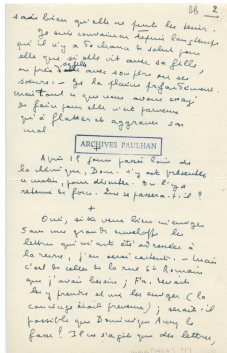 DB 2
sais bien qu'elle ne peut les tenir.
Je suis convaincu depuis longtemps
qu'il n'y a de chance de salut pour
elle que si elle vit avec sa fille,
ou près avec son père ou ses
sœurs. Je la plains profondément
mais tout ce que nous avons essayé
de faire pour elle n'est parvenu
qu'à flatter et aggraver son
mal
ARCHIVES PAULHAN
Après 15 jours passés loin de
la clinique, Dom. s'y est présentée
ce matin, pour. On l'y a
retenue de force. Que se passera-t-il ?
+
Oui, si tu veux bien m'envoyer
sous une grande enveloppe les
lettres qui m'ont été adressées à
la revue, j'en serai content. — Mais
c'est de celles de la rue St Romain
que j'avais besoin ; Fr. devait
les y prendre et me les envoyer (la
concierge était prévenue) ; serait-il
possible que Dominique Aury le
fasse ? Il ne s'agit que des lettres,